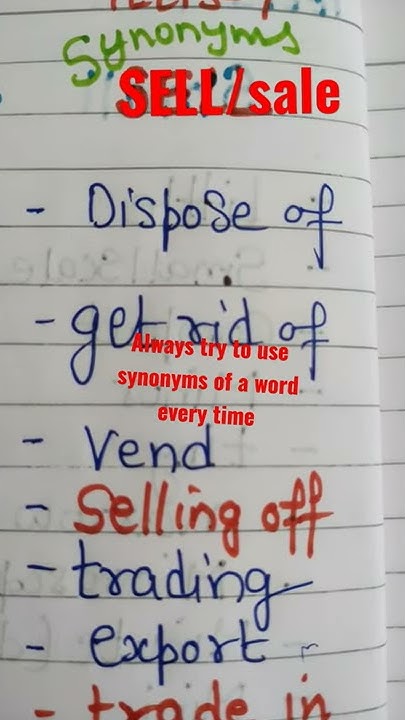 Synonyms
SELL/sale
- Dispose of
- get rid of
Always try to use
synonyms of a word
every time
- Vend
- Selling off
- trading
- export
- trade in